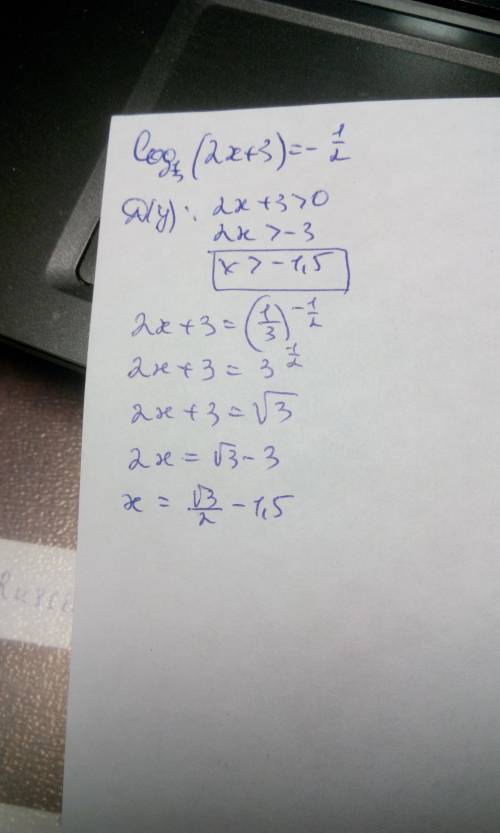 log_{1/3}(2x+3)=-1/2
D(y): 2x+3>0
2x>-3
x>-1,5
2x+3=(1/3)^{-1/2}
2x+3=3^{1/2}
2x+3=√3
2x=√3-3
x=√3/2-1,5